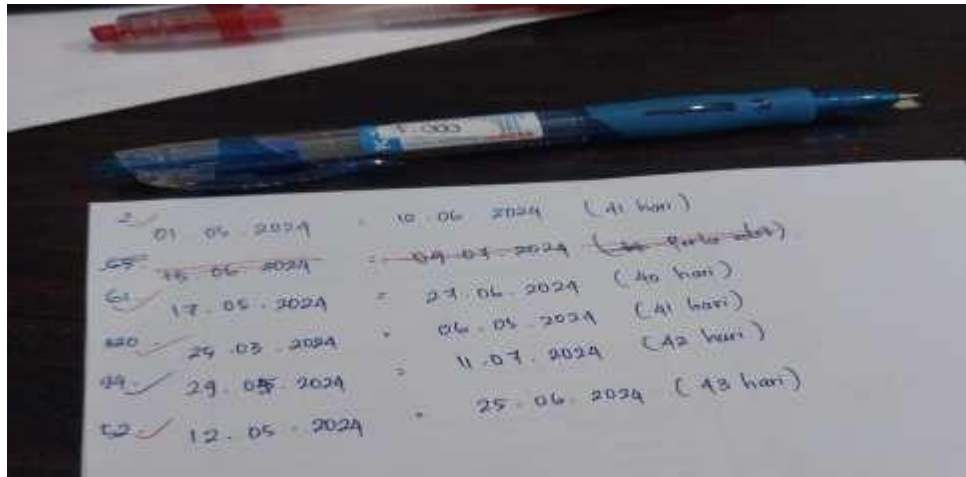 5.000
2. 01 05 2024 = 10.06 2024 (41 hari)
65. 15 06 2024 = 04.07.2024
61. 17.05.2024 = 27.06.2024 (40 hari)
24.03.2024 = 06.05.2024 (41 hari)
29.05.2024 = 11.07.2024 (42 hari)
52. 12.05.2024 = 25.06.2024 (43 hari)